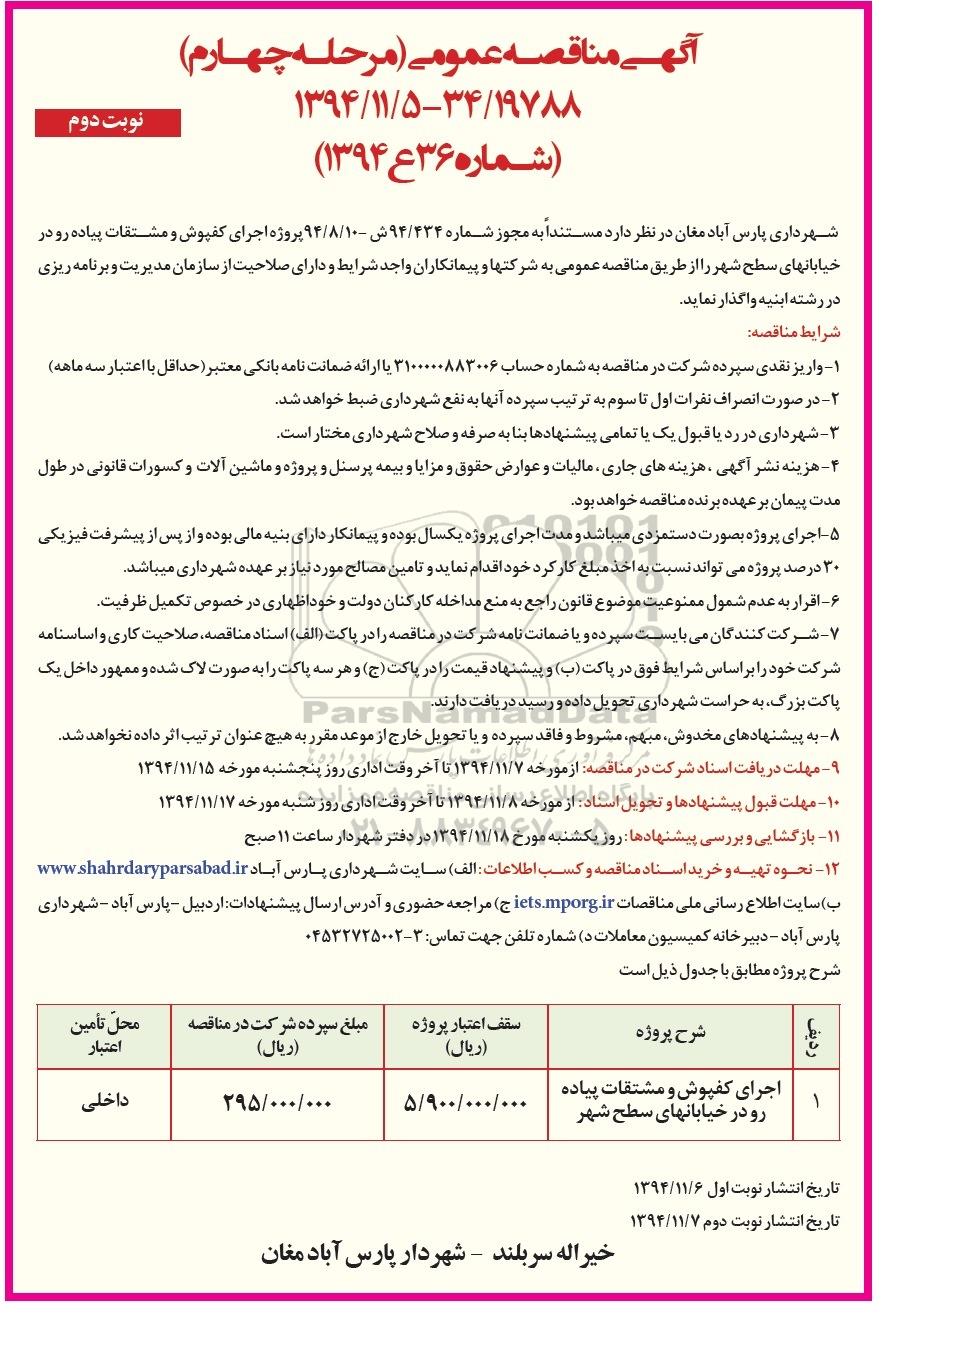 آگهی مناقصه عمومی (مرحله چهارم)
۱۳۹۴/۱۱/۵-۳۴/۱۹۷۸۸
(شماره ۳۶ع۱۳۹۴)
نوبت دوم
شهرداری پارس آباد مغان در نظر دارد مستنداً به مجوز شماره ۹۴/۴۳۴ ش -۹۴/۸/۱۰ پروژه اجرای کفپوش و مشتقات پیاده رو در
خیابانهای سطح شهر را از طریق مناقصه عمومی به شرکتها و پیمانکاران واجد شرایط و دارای صلاحیت از سازمان مدیریت و برنامه ریزی
در رشته ابنیه واگذار نماید.
شرایط مناقصه:
۱- واریز نقدی سپرده شرکت در مناقصه به شماره حساب ۳۱۰۰۰۰۰۸۸۳۰۰۶ یا ارائه ضمانت نامه بانکی معتبر (حداقل با اعتبار سه ماهه)
۲- در صورت انصراف نفرات اول تا سوم به ترتیب سپرده آنها به نفع شهرداری ضبط خواهد شد.
۳- شهرداری در رد یا قبول یک یا تمامی پیشنهادها بنا به صرفه و صلاح شهرداری مختار است.
۴- هزینه نشر آگهی ، هزینه های جاری ، مالیات و عوارض حقوق و مزایا و بیمه پرسنل و پروژه و ماشین آلات و کسورات قانونی در طول
مدت پیمان بر عهده برنده مناقصه خواهد بود.
۵-اجرای پروژه بصورت دستمزدی میباشد و مدت اجرای پروژه یکسال بوده و پیمانکار دارای بنیه مالی بوده و از پس از پیشرفت فیزیکی
۳۰ درصد پروژه می تواند نسبت به اخذ مبلغ کارکرد خود اقدام نماید و تامین مصالح مورد نیاز بر عهده شهرداری میباشد.
۶- اقرار به عدم شمول ممنوعیت موضوع قانون راجع به منع مداخله کارکنان دولت و خوداظهاری در خصوص تکمیل ظرفیت.
۷- شرکت کنندگان می بایست سپرده و یا ضمانت نامه شرکت در مناقصه را در پاکت (الف) اسناد مناقصه، صلاحیت کاری و اساسنامه
شرکت خود را براساس شرایط فوق در پاکت (ب) و پیشنهاد قیمت را در پاکت (ج) و هر سه پاکت را به صورت لاک شده و ممهور داخل یک
پاکت بزرگ، به حراست شهرداری تحویل داده و رسید دریافت دارند.
۸- به پیشنهادهای مخدوش، مبهم، مشروط و فاقد سپرده و یا تحویل خارج از موعد مقرر به هیچ عنوان ترتیب اثر داده نخواهد شد.
۹- مهلت دریافت اسناد شرکت در مناقصه: از مورخه ۱۳۹۴/۱۱/۷ تا آخر وقت اداری روز پنجشنبه مورخه ۱۳۹۴/۱۱/۱۵
۱۰- مهلت قبول پیشنهادها و تحویل اسناد : از مورخه ۱۳۹۴/۱۱/۸ تا آخر وقت اداری روز شنبه مورخه ۱۳۹۴/۱۱/۱۷
۱۱- بازگشایی و بررسی پیشنهادها : روز یکشنبه مورخ ۱۳۹۴/۱۱/۱۸ در دفتر شهردار ساعت ۱۱ صبح
۱۲- نحوه تهیه و خرید اسناد مناقصه و کسب اطلاعات : الف) سایت شهرداری پارس آباد www.shahrdaryparsabad.ir
ب) سایت اطلاع رسانی ملی مناقصات iets.mporg.ir ج) مراجعه حضوری و آدرس ارسال پیشنهادات: اردبیل - پارس آباد - شهرداری
پارس آباد - دبیرخانه کمیسیون معاملات د) شماره تلفن جهت تماس: ۳-۰۴۵۳۲۷۲۵۰۰۲
شرح پروژه مطابق با جدول ذیل است
ردیف شرح پروژه سقف اعتبار پروژه (ریال) مبلغ سپرده شرکت در مناقصه (ریال) محلّ تأمین اعتبار
۱ اجرای کفپوش و مشتقات پیاده رو در خیابانهای سطح شهر ۵/۹۰۰/۰۰۰/۰۰۰ ۲۹۵/۰۰۰/۰۰۰ داخلی
تاریخ انتشار نوبت اول ۱۳۹۴/۱۱/۶
تاریخ انتشار نوبت دوم ۱۳۹۴/۱۱/۷
خیراله سربلند - شهردار پارس آباد مغان
ParsNamadData
پایگاه اطلاع رسانی مناقصه و مزایده
۰۲۱-۸۸۳۴۹۶۷۰-۵